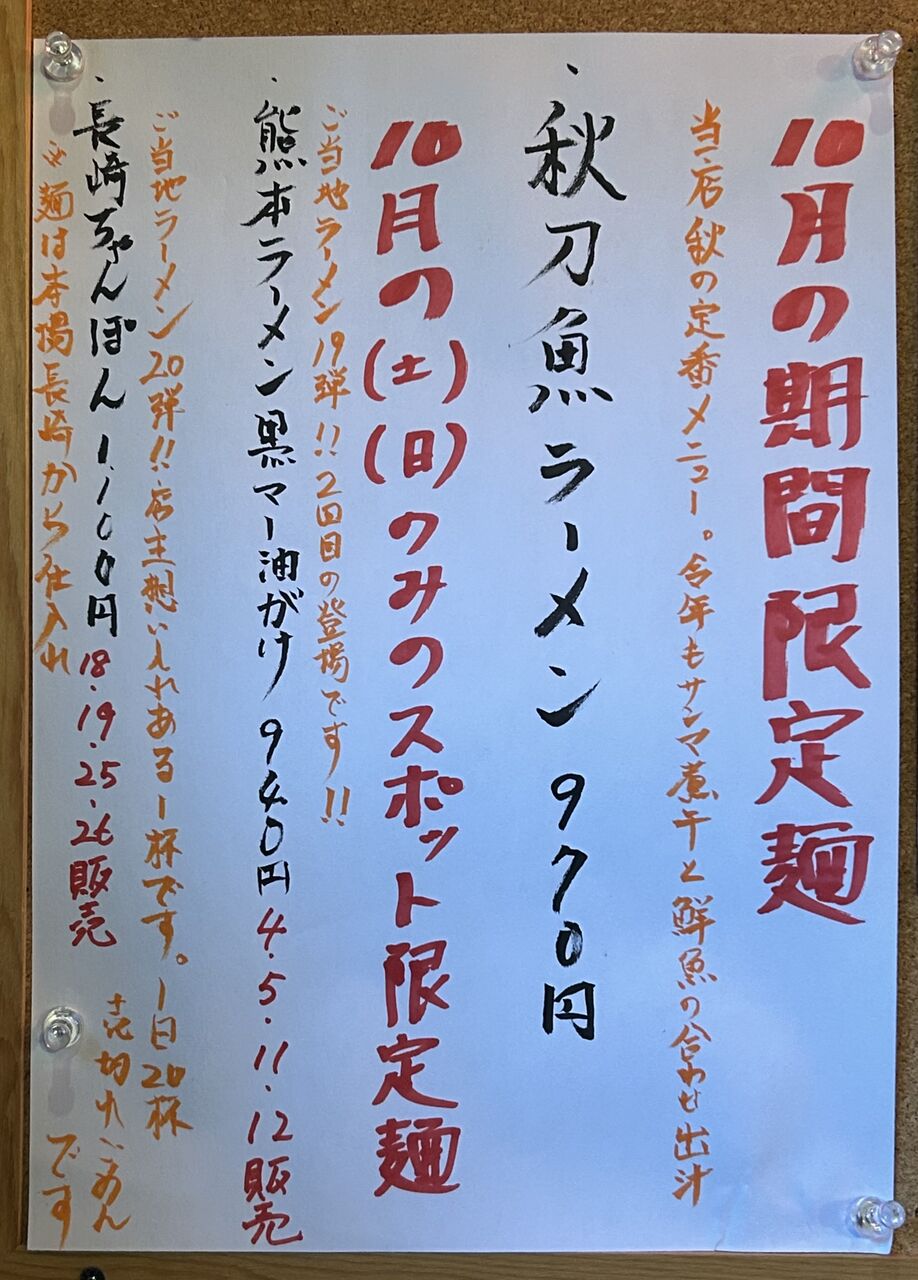 10月の期間限定麺
当店秋の定番メニュー。今年もサンマ煮干と鮮魚の合わせ出汁
・秋刀魚ラーメン970円
10月の(土)(日)のみのスポット限定麺
ご当地ラーメン19弾!!2回目の登場です!!
・熊本ラーメン黒マー油がけ940円4.5.11.12販売
ご当地ラーメン20弾!!店主想い入れある一杯です。1日20杯
・長崎ちゃんぽん1,100円18.19.25.26販売
売切れごめん
です
※麺は本場長崎から仕入れ